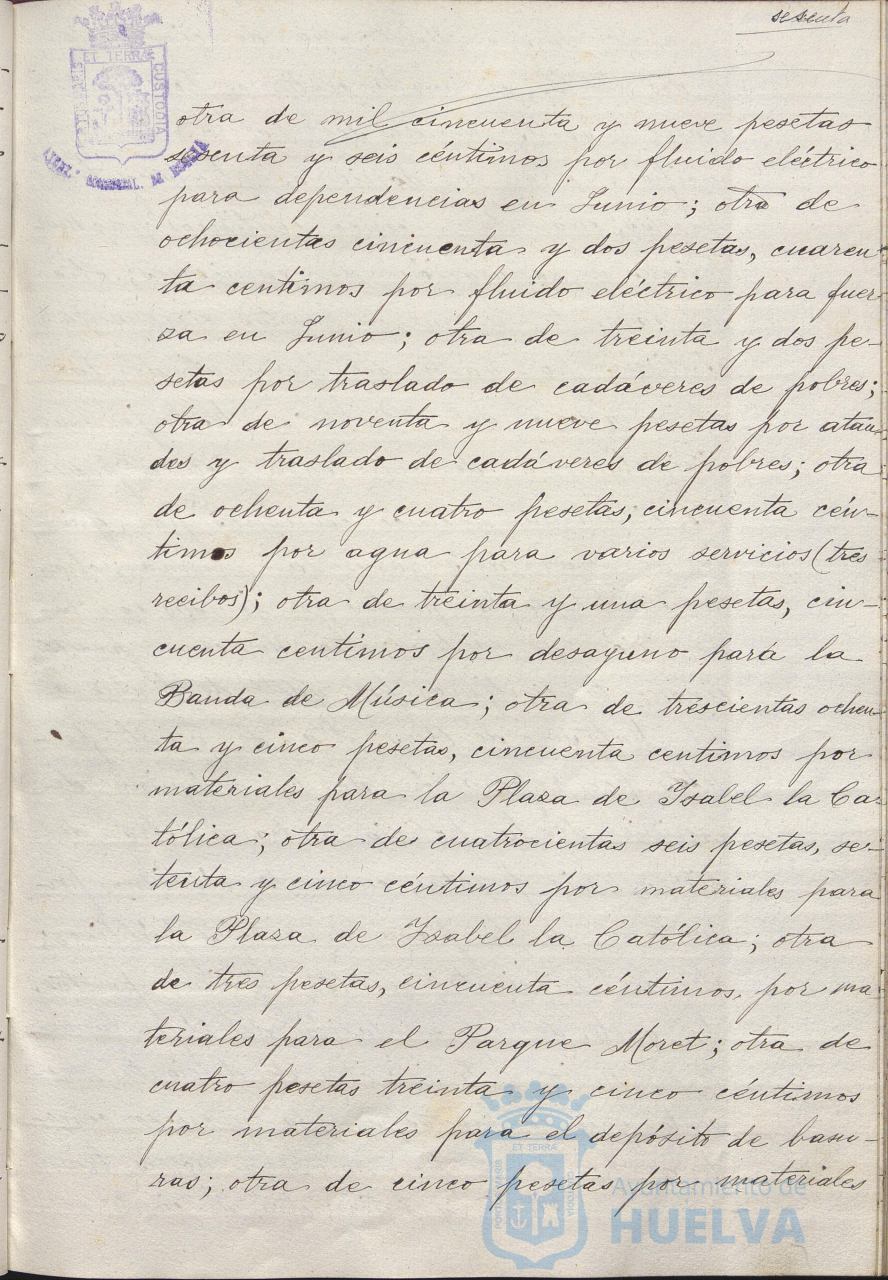 sesenta
otra de mil cincuenta y nueve pesetas
sesenta y seis céntimos por fluido eléctrico
para dependencias en Junio; otra de
ochocientas cincuenta y dos pesetas, cuaren-
ta centimos por fluido eléctrico para fuer-
za en Junio; otra de treinta y dos pe-
setas por traslado de cadáveres de pobres;
otra de noventa y nueve pesetas por atau-
des y traslado de cadáveres de pobres; otra
de ochenta y cuatro pesetas, cincuenta cén-
timos por agua para varios servicios (tres
recibos); otra de treinta y una pesetas, cin-
cuenta centimos por desayuno para la
Banda de Música; otra de trescientas ochen-
ta y cinco pesetas, cincuenta centimos por
materiales para la Plaza de Ysabel la Ca-
tólica; otra de cuatrocientas seis pesetas, se-
tenta y cinco céntimos por materiales para
la Plaza de Ysabel la Católica; otra
de tres pesetas, cincuenta céntimos, por ma-
teriales para el Parque Moret; otra de
cuatro pesetas treinta y cinco céntimos
por materiales para el depósito de basu-
ras; otra de cinco pesetas por materiales
ET TERRA
CUSTODIA
PORTUS MARIS
ET TERRA
CUSTODIA
Ayuntamiento de
HUELVA